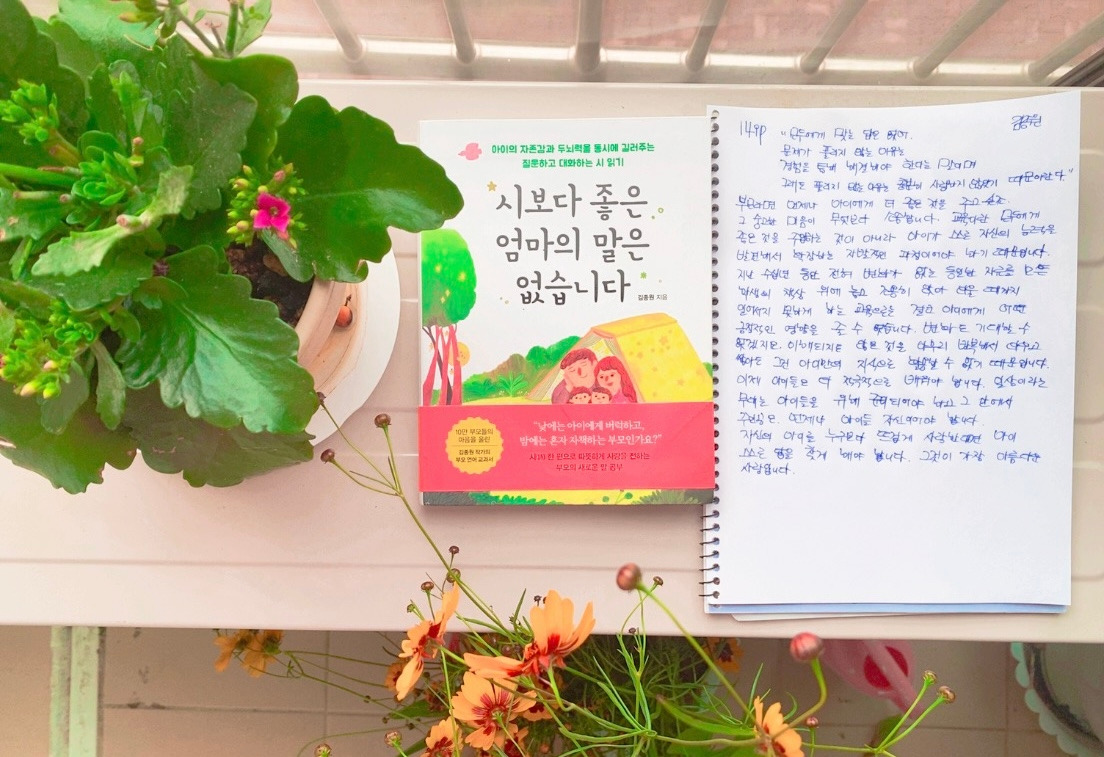 아이의 자존감과 두뇌력을 동시에 길러주는
질문하고 대화하는 시 읽기
시보다 좋은
엄마의 말은
없습니다
김종원 지음
10만 부모들의
마음을 울린
김종원 작가의
부모 언어 교과서
"낮에는 아이에게 버럭하고,
밤에는 혼자 자책하는 부모인가요?"
시와 한 편으로 따뜻하게 사랑을 전하는
부모의 새로운 말 공부
149p
"모두에게 맞는 답은 없어.
문제가 풀리지 않는 이유는
경험을 통해 해야 한다는 말이며
그래도 풀리지 않는 이유는 충분히 사랑하지 않았기 때문이란다."
부모라면 언제나 아이에게 더 좋은 것을 주고 싶죠.
그 마음이 무엇보다 소중합니다. 교육이란 모두에게
같은 것을 주입하는 것이 아니라 아이가 스스로 자신의 능력을
발견해서 확장하는 자발적인 과정이어야 하기 때문입니다.
지난 수십년 동안 전혀 변화가 없는 동일한 자료를 모든
학생의 책상 위에 놓고 조용히 앉아 답을 때까지
일어서지 못하게 하는 교육으로는 결코 아이에게 어떤
긍정적인 영향을 줄 수 없습니다. 변화도 기대할 수
없겠지요. 이해되지도 않은 것을 아무리 반복해서 외우고
그건 아이만의 지식으로 수 없기 때문입니다.
이제 아이들은 더 적극적으로 배워야 합니다. 일상이라는
무대는 아이들을 위해 준비되어야 하고 그 안에서
주인공은 언제나 아이들 자신이어야 합니다.
자신의 아이를 누구보다 뜨겁게 사랑한다면 아이
스스로 답을 찾게 해야 합니다. 그것이 가장 아름다운
사랑입니다.